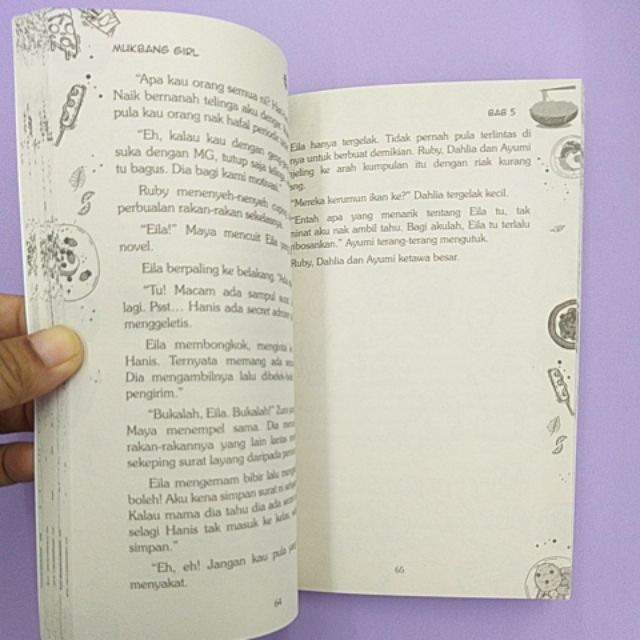 MUKBANG GIRL
"Apa kau orang semua ni?
Naik bernanah telinga aku dengar
pula kau orang nak hafal periodic
"Eh, kalau kau dengan geng
suka dengan MG, tutup saja
tu bagus. Dia bagi kami motivasi."
Ruby menenyeh-nenyeh
perbualan rakan-rakan sekelasnya.
"Eila!" Maya mencuit Eila yang
novel.
Eila berpaling ke belakang.
"Tu! Macam ada sampul surat
lagi. Psst... Hanis ada secret admirer
menggeletis.
Eila membongkok, mengintai
Hanis. Ternyata memang ada
Dia mengambilnya lalu dibelek-belek
pengirim."
"Bukalah, Eila. Bukalah!"
Maya menempel sama. Dia
rakan-rakannya yang lain
sekeping surat layang daripada
Eila mengemam bibir lalu
boleh! Aku kena simpan surat ni
Kalau mama dia tahu dia ada
selagi Hanis tak masuk ke kelas,
simpan."
"Eh, eh! Jangan kau pula yang
menyakat.
64
BAB 5
Eila hanya tergelak. Tidak pernah pula terlintas di
nya untuk berbuat demikian. Ruby, Dahlia dan Ayumi
jeling ke arah kumpulan itu dengan riak kurang
ng.
"Mereka kerumun ikan ke?" Dahlia tergelak kecil.
"Entah apa yang menarik tentang Eila tu, tak
minat aku nak ambil tahu. Bagi akulah, Eila tu terlalu
mbosankan." Ayumi terang-terang mengutuk.
Ruby, Dahlia dan Ayumi ketawa besar.
65